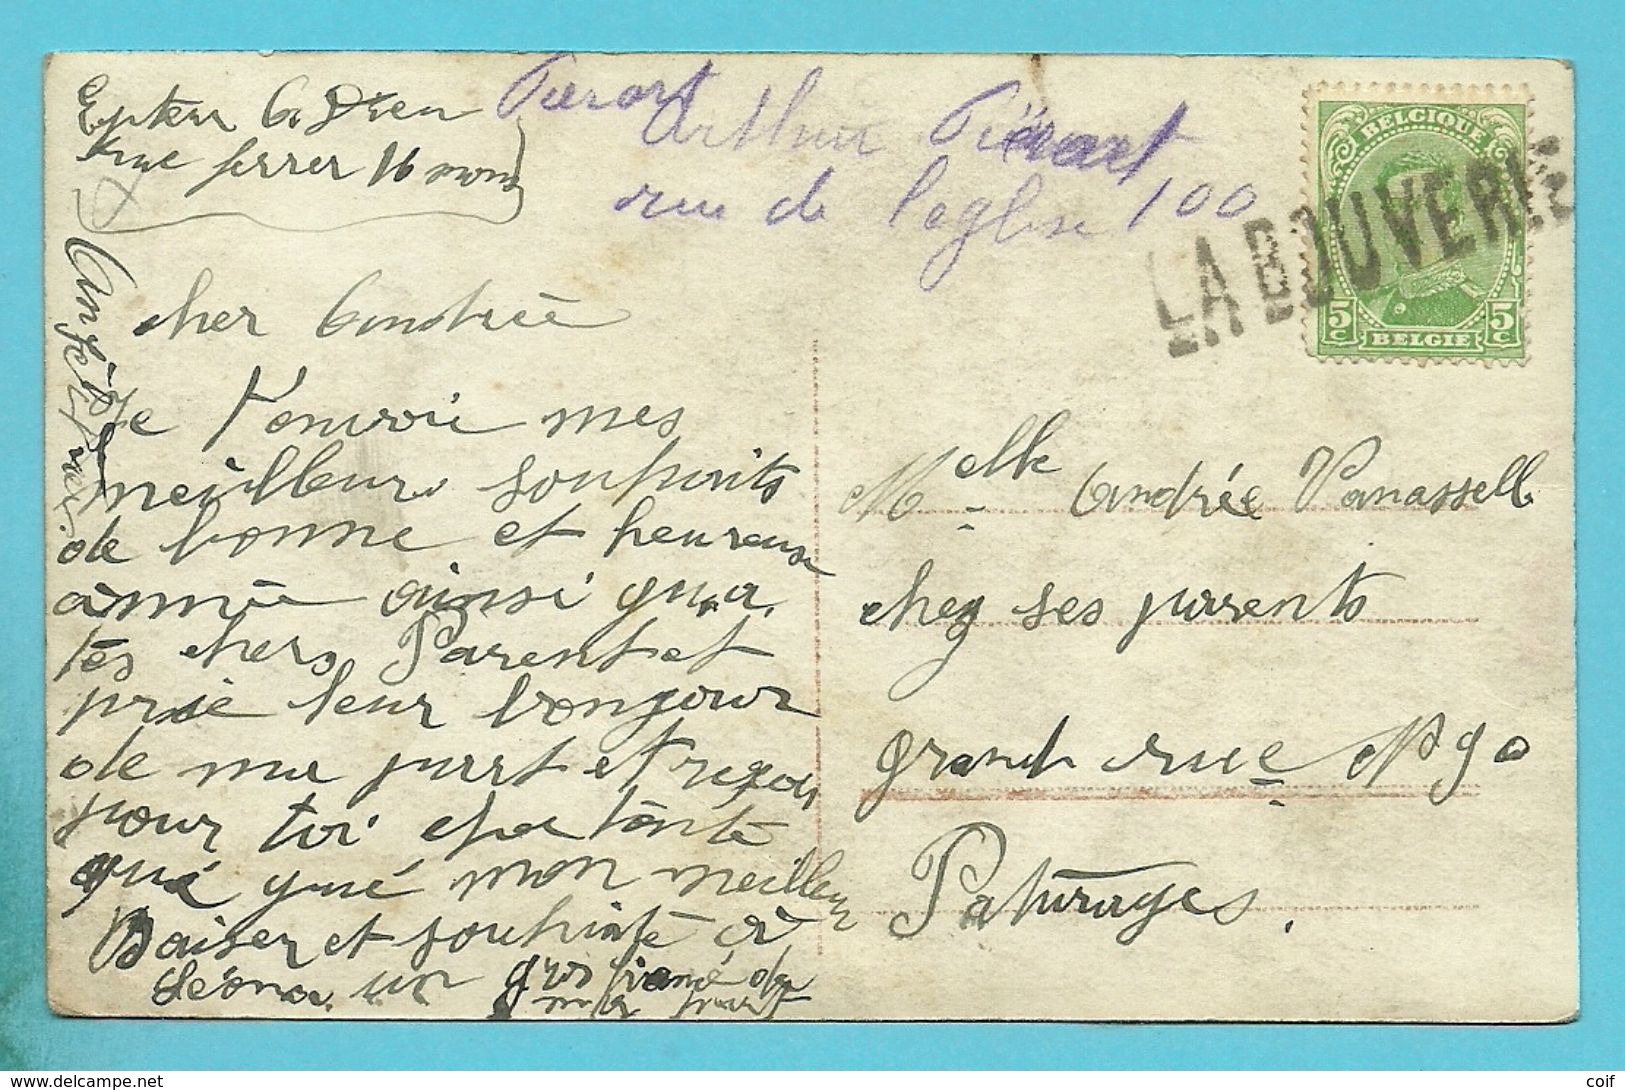 rue ferrer 16 mons
Pierart
Arthur Pierart
rue de l'eglise 100
BELGIQUE
5c 5c
BELGIE
LA BOUVERIE
cher Andrée
Je t'envoie mes
meilleurs souhaits
de bonne et heureuse
année ainsi qu'a
tes chers Parent et
prie leur bonjour
de ma part et reçois
pour toi cher tante
qué mon meilleur
Baiser et souhiate à
Léona un gros fiané de
ma part
Melle Andrée Vanassell
chez ses parents
grand rue N 90
Paturages.
coif